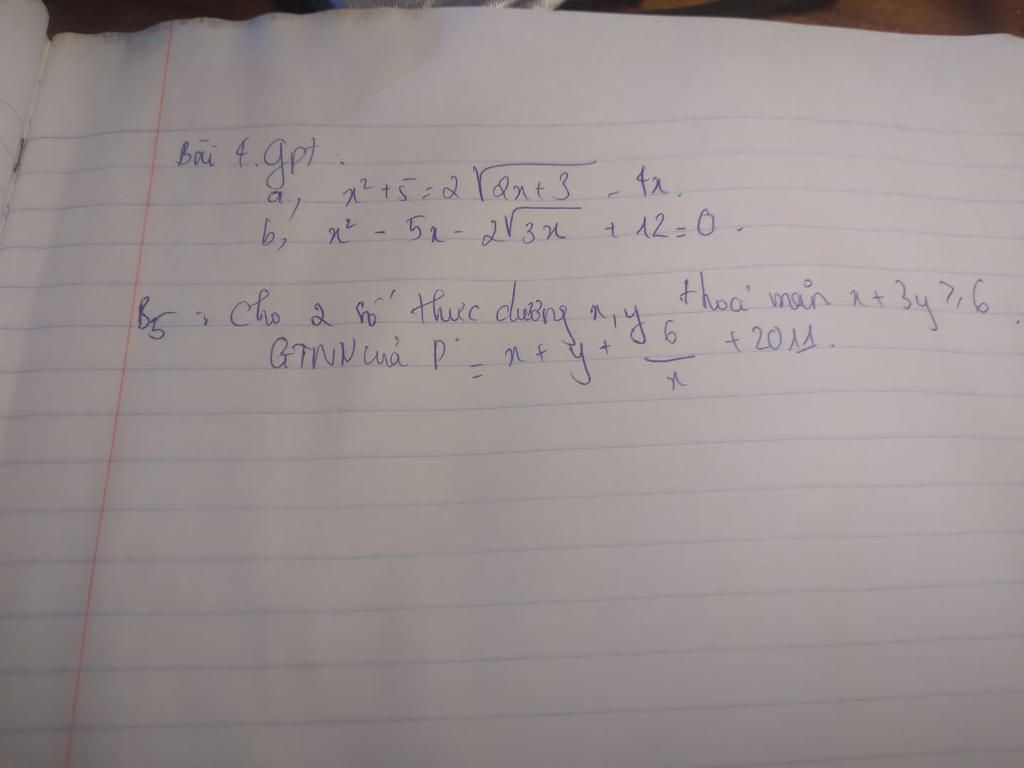 Bài 4. Gpt.
a, x² + 5 = 2√(2x+3) - 4x.
b, x² - 5x - 2√(3x) + 12 = 0.
B5: Cho 2 số thực dương x, y thoả mãn x + 3y ≥ 6.
GTNN của P = x + y + 6/x + 2011.